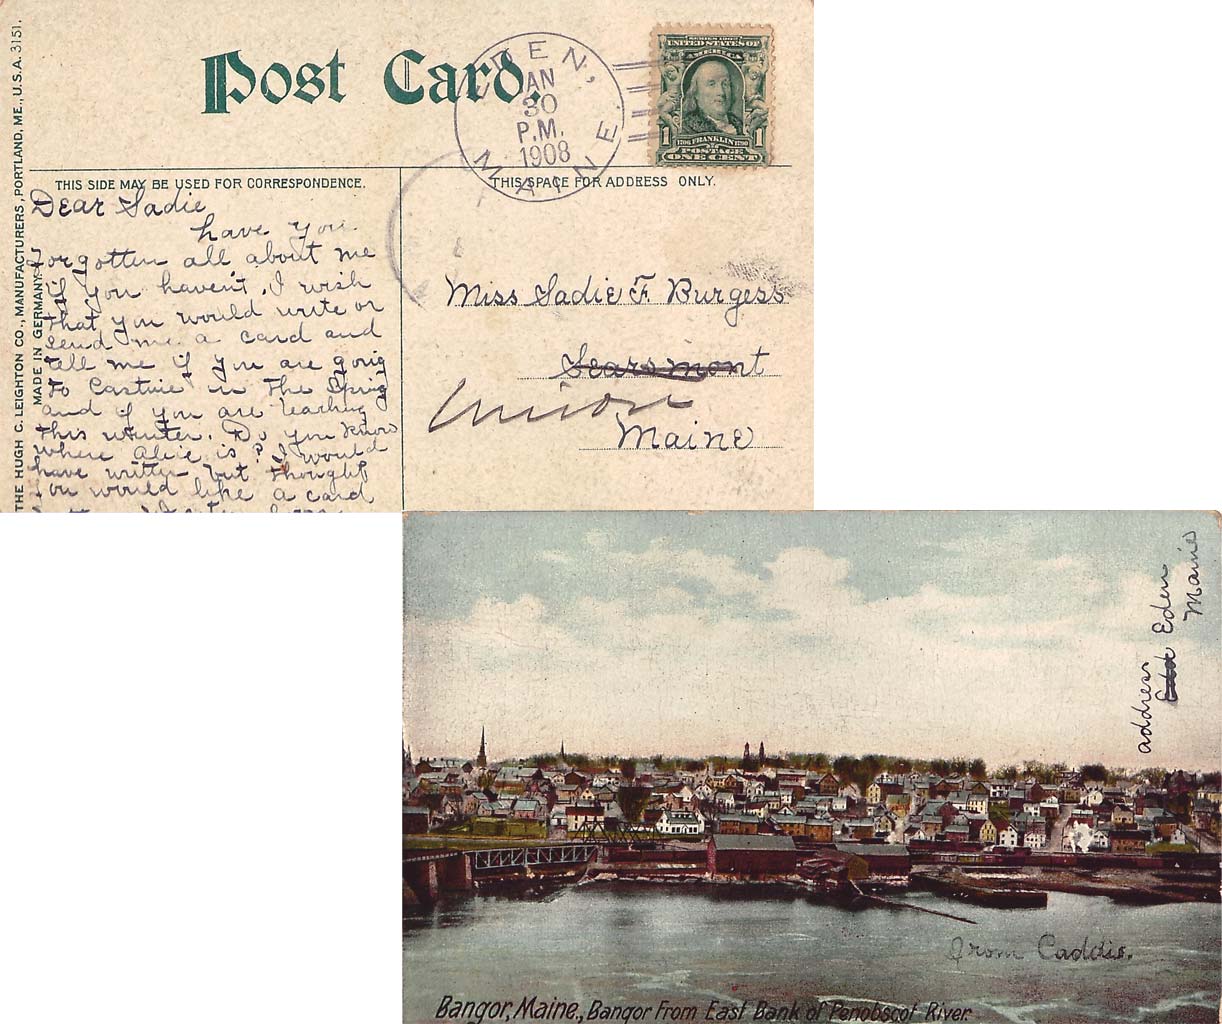 Post Card.
EDEN,
JAN
30
P.M.
1908
MAINE.
SERIES 1902
UNITED STATES OF
AMERICA
1 1706 FRANKLIN 1790 1
POSTAGE
ONE CENT
THE HUGH C. LEIGHTON CO., MANUFACTURERS, PORTLAND, ME., U.S.A. 3151.
MADE IN GERMANY.
THIS SIDE MAY BE USED FOR CORRESPONDENCE.
THIS SPACE FOR ADDRESS ONLY.
Dear Sadie
have you
Forgotten all about me
if you haven't, I wish
that you would write or
send me a card and
tell me if you are going
to Castine in the Spring
and if you are teaching
this winter. Do you know
where Alice is? I would
have written but thought
you would like a card
Miss Sadie F. Burgess
Searsmont
Union
Maine
address
Eden
Maine
From Caddie.
Bangor, Maine., Bangor From East Bank of Penobscot River.